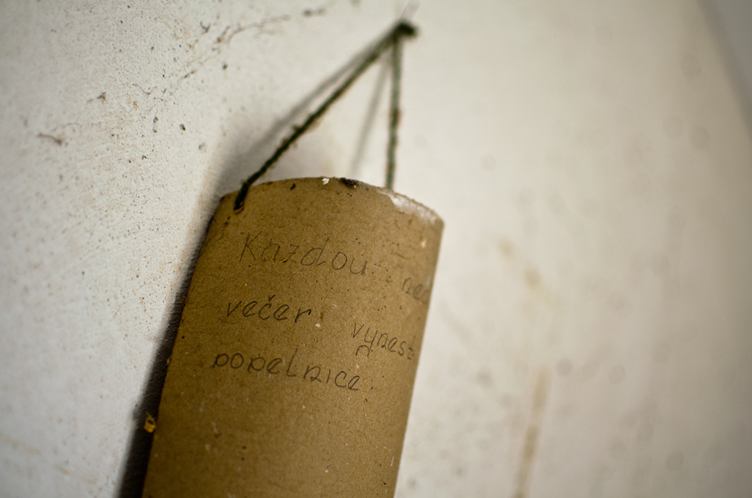 Každou ned
večer vynest
popelnice